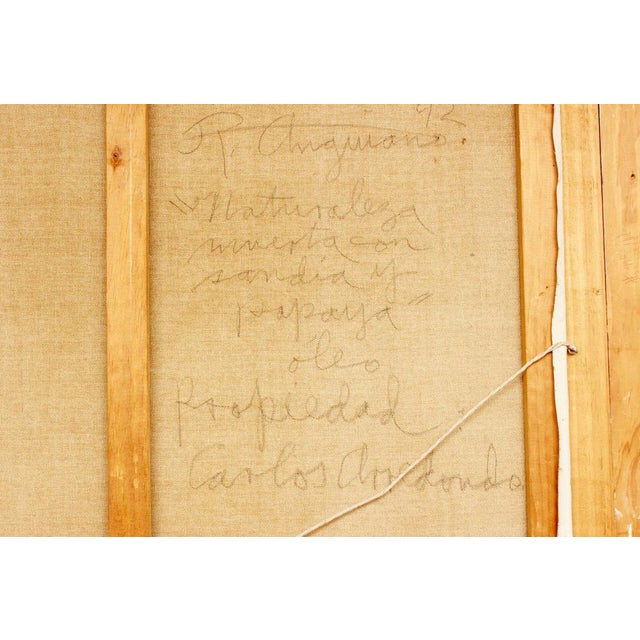 92
R. Anguiano.
"Naturaleza
muerta con
sandía y
papaya"
óleo
Propiedad
Carlos Arredondo